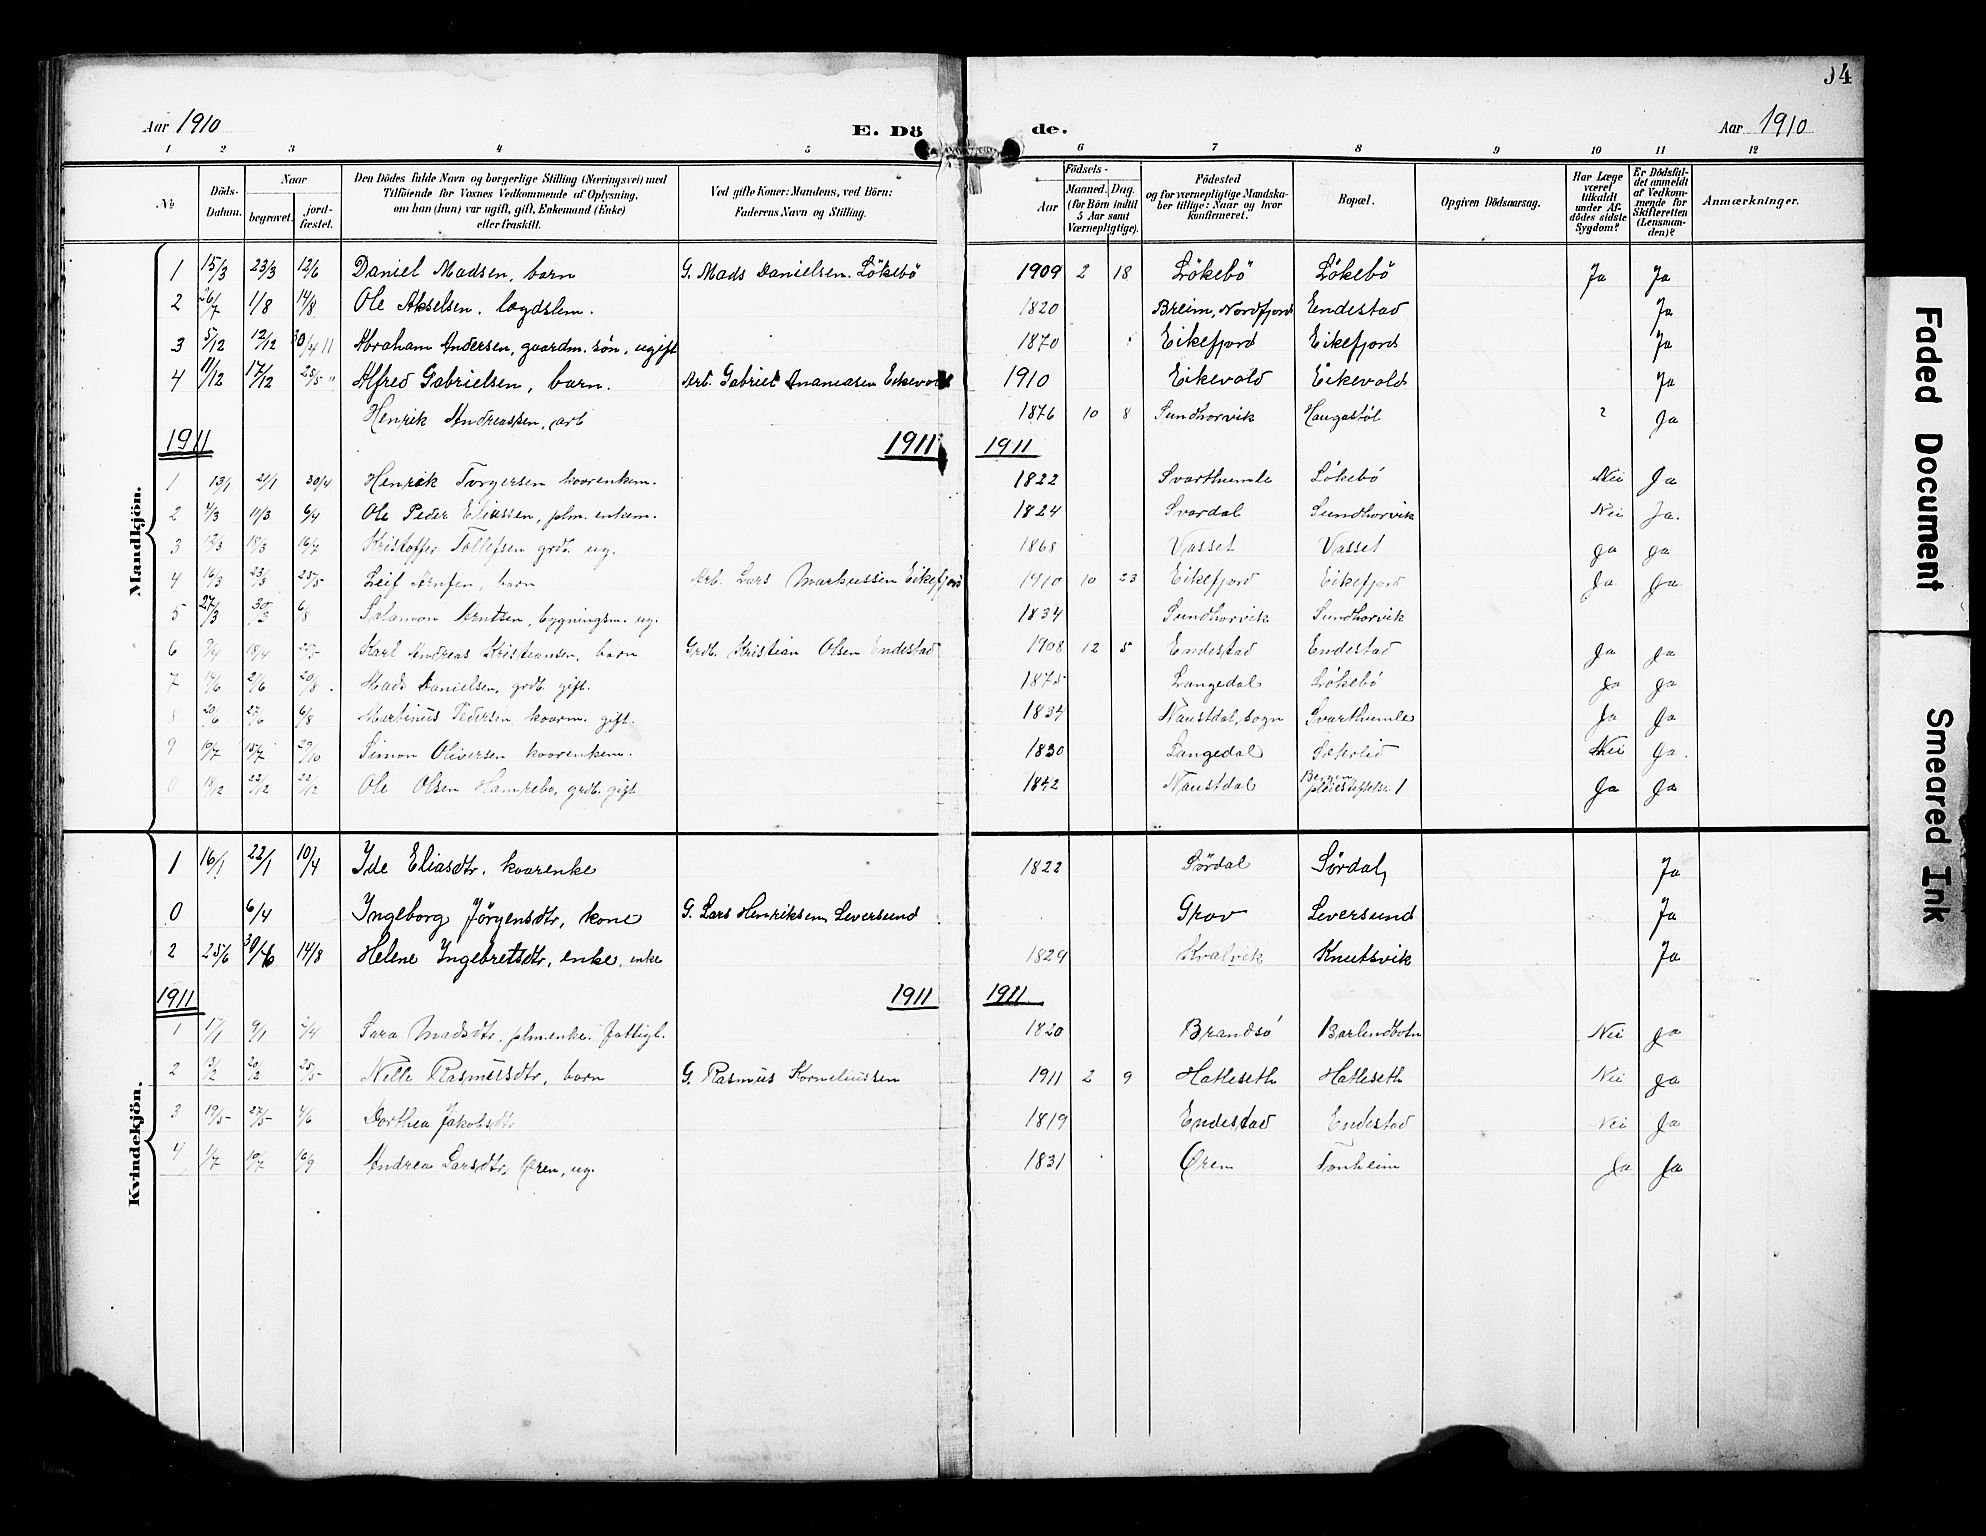 94
Aar 1910 E. Dö de. Aar 1910
1 2 3 4 5 6 7 8 9 10 11 12
No Döds-Datum. Naar begravet. jord-fæstet. Den Dödes fulde Navn og borgerlige Stilling (Næringsvei) med Tilföiende for Voxnes Vedkommende af Oplysning, om han (hun) var ugift, gift, Enkemand (Enke) eller fraskilt. Ved gifte Koner: Mandens, ved Börn: Faderens Navn og Stilling. Födsels- Aar Maaned. Dag. (for Börn indtil 5 Aar samt Værnepligtige). Födested og for værnepligtige Mandskaber tillige: Naar og hvor konfirmeret. Bopæl. Opgiven Dödsaarsag. Har Læge været tilkaldt under Afdödes sidste Sygdom? Er Dödsfaldet anmeldt af Vedkommende for Skifteretten (Lensmanden)? Anmærkninger.
Mandkjön.
1 15/3 23/3 12/6 Daniel Madsen, barn G. Mads Danielsen. Lökebö 1909 2 18 Lökebö Lökebö Ja Ja
2 26/7 1/8 14/8 Ole Akselsen, lægdslem. 1820 Breim, Nordfjord Endestad Ja
3 5/12 12/12 30/4 11 Abraham Andersen, gaardm. søn, ugift 1870 Eikefjord Eikefjord Ja
4 11/12 17/12 25/5 " Alfred Gabrielsen, barn. Arb. Gabriel Ananiasen Eikevold 1910 Eikevold Eikevold Ja
Henrik Andreassen, arb 1876 10 8 Sundhorvik Haugastöl ? Ja
1911 1911 1911
1 13/1 21/1 30/4 Henrik Torgersen kaarenkem. 1822 Svarthumle Lökebö Nei Ja
2 4/3 11/3 6/4 Ole Peder Eliassen, plm. enkem. 1824 Svardal Sundhorvik Nei Ja.
3 13/3 18/3 16/7 Kristoffer Tollefsen grdb. ug. 1868 Vasset Vasset Ja Ja
4 16/3 23/3 25/5 Leif Arnfen, barn Arb. Lars Markussen Eikefjord 1910 10 23 Eikefjord Eikefjord Ja Ja.
5 27/3 30/3 6/8 Salamon Arntsen, bygningsm. ug. 1834 Sundhorvik Sundhorvik
6 9/4 18/4 25/5 Karl Andreas Kristiansen, barn Grdb. Kristian Olsen Endestad 1908 12 5 Endestad Endestad Ja Ja
7 2/6 20/8 Mads Danielsen, grdb. gift. 1875 Langedal Lökebö Ja Ja
8 20/6 27/6 6/8 Martinus Pedersen kaarm. gift. 1834 Naustdal, sogn Svarthumle Ja Ja
9 10/7 15/7 29/10 Simon Oliversen kaarenkem. 1830 Langedal Sæterlid Nei Ja.
0 18/12 22/12 22/12 Ole Olsen Hamrebø, grdb. gift 1842 Naustdal pleiestiftelse 1 Ja Ja
Kvindekjön.
1 16/1 22/1 10/4 Ide Eliasdtr. kaarenke 1822 Sördal Sördal, Ja
0 6/4 Ingeborg Jörgensdtr, kone G. Lars Henriksen, Leversund Grov Leversund Ja
2 25/6 30/6 14/8 Helene Ingebretsdtr, enke, enke 1829 Kvalvik Knutsvik Ja
1911 1911 1911
1 1/1 9/1 2/4 Sara Madsdtr, plm.enke. fattigl. 1820 Brandsö Barlindbotn Nei Ja
2 13/2 20/2 25/5 Nelle Rasmusdtr, barn G. Rasmus Korneliussen 1911 2 9 Hatleseth Hatleseth Nei Ja
3 19/5 27/5 4/6 Dorthea Jakobsdtr 1819 Endestad Endestad Nei Ja
4 1/7 10/7 16/9 Andrea Larsdtr, Øren, ug. 1831 Øren Tonheim Ja Ja
Faded Document
Smeared Ink